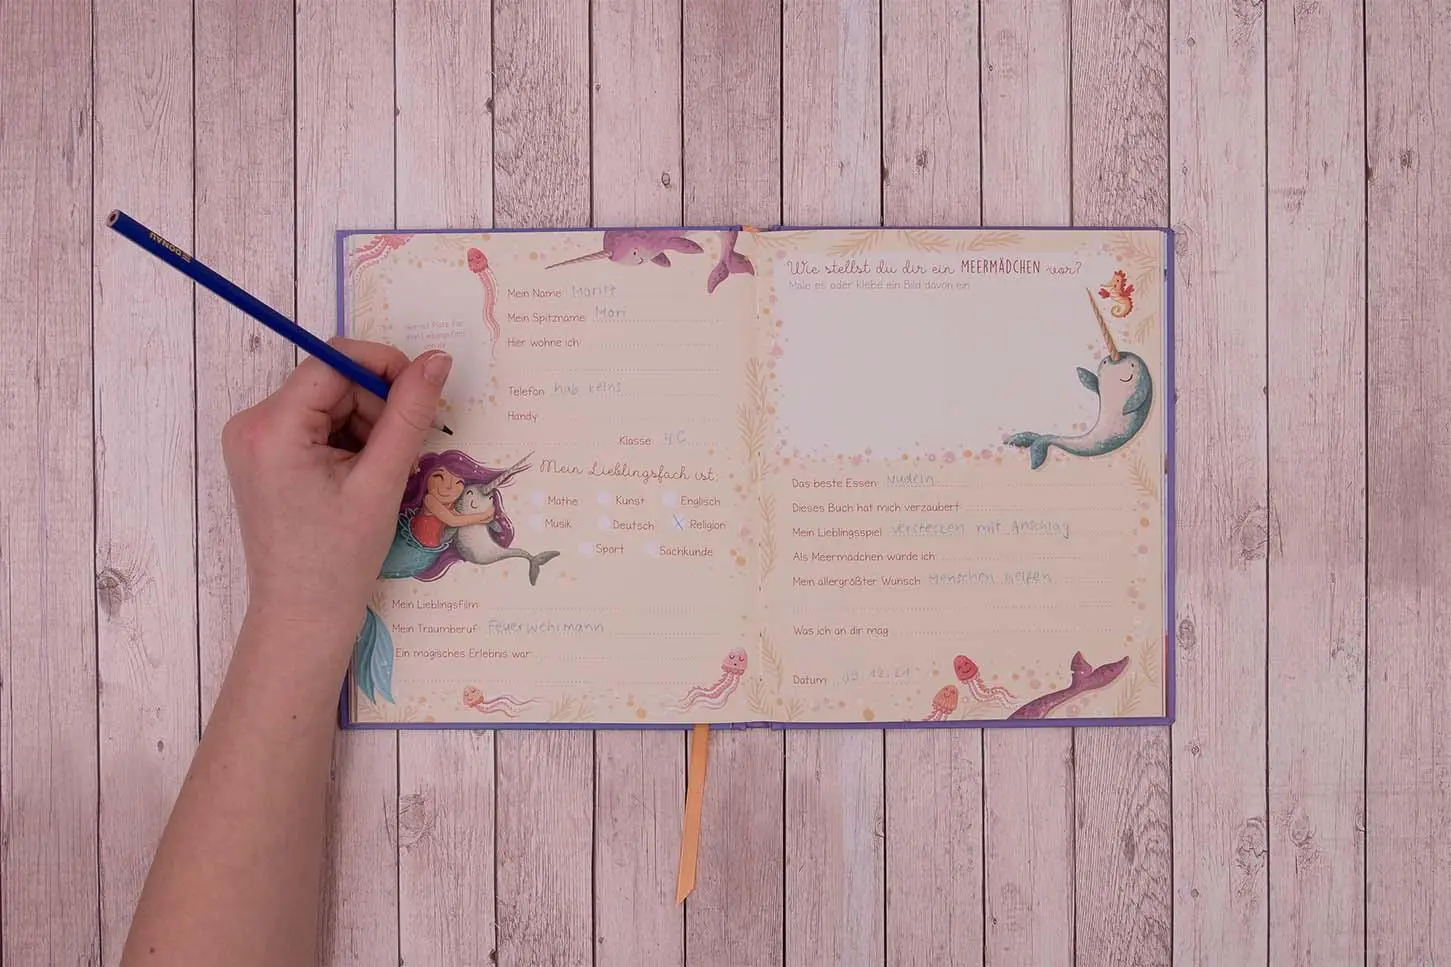 DONAU
Mein Name: Marit
Mein Spitzname: Mari
Hier wohne ich:
Telefon: hab keins
Handy
Klasse: 4C
Mein Lieblingsfach ist:
Mathe Kunst Englisch
Musik Deutsch X Religion
Sport Sachkunde
Mein Lieblingsfilm:
Mein Traumberuf: Feuerwehrmann
Ein magisches Erlebnis war:
Wie stellst du dir ein MEERMÄDCHEN vor?
Male es oder klebe ein Bild davon ein
Das beste Essen: Nudeln
Dieses Buch hat mich verzaubert:
Mein Lieblingsspiel: verstecken mit Anschlag
Als Meermädchen würde ich:
Mein allergrößter Wunsch: Menschen helfen
Was ich an dir mag
Datum: 12.21